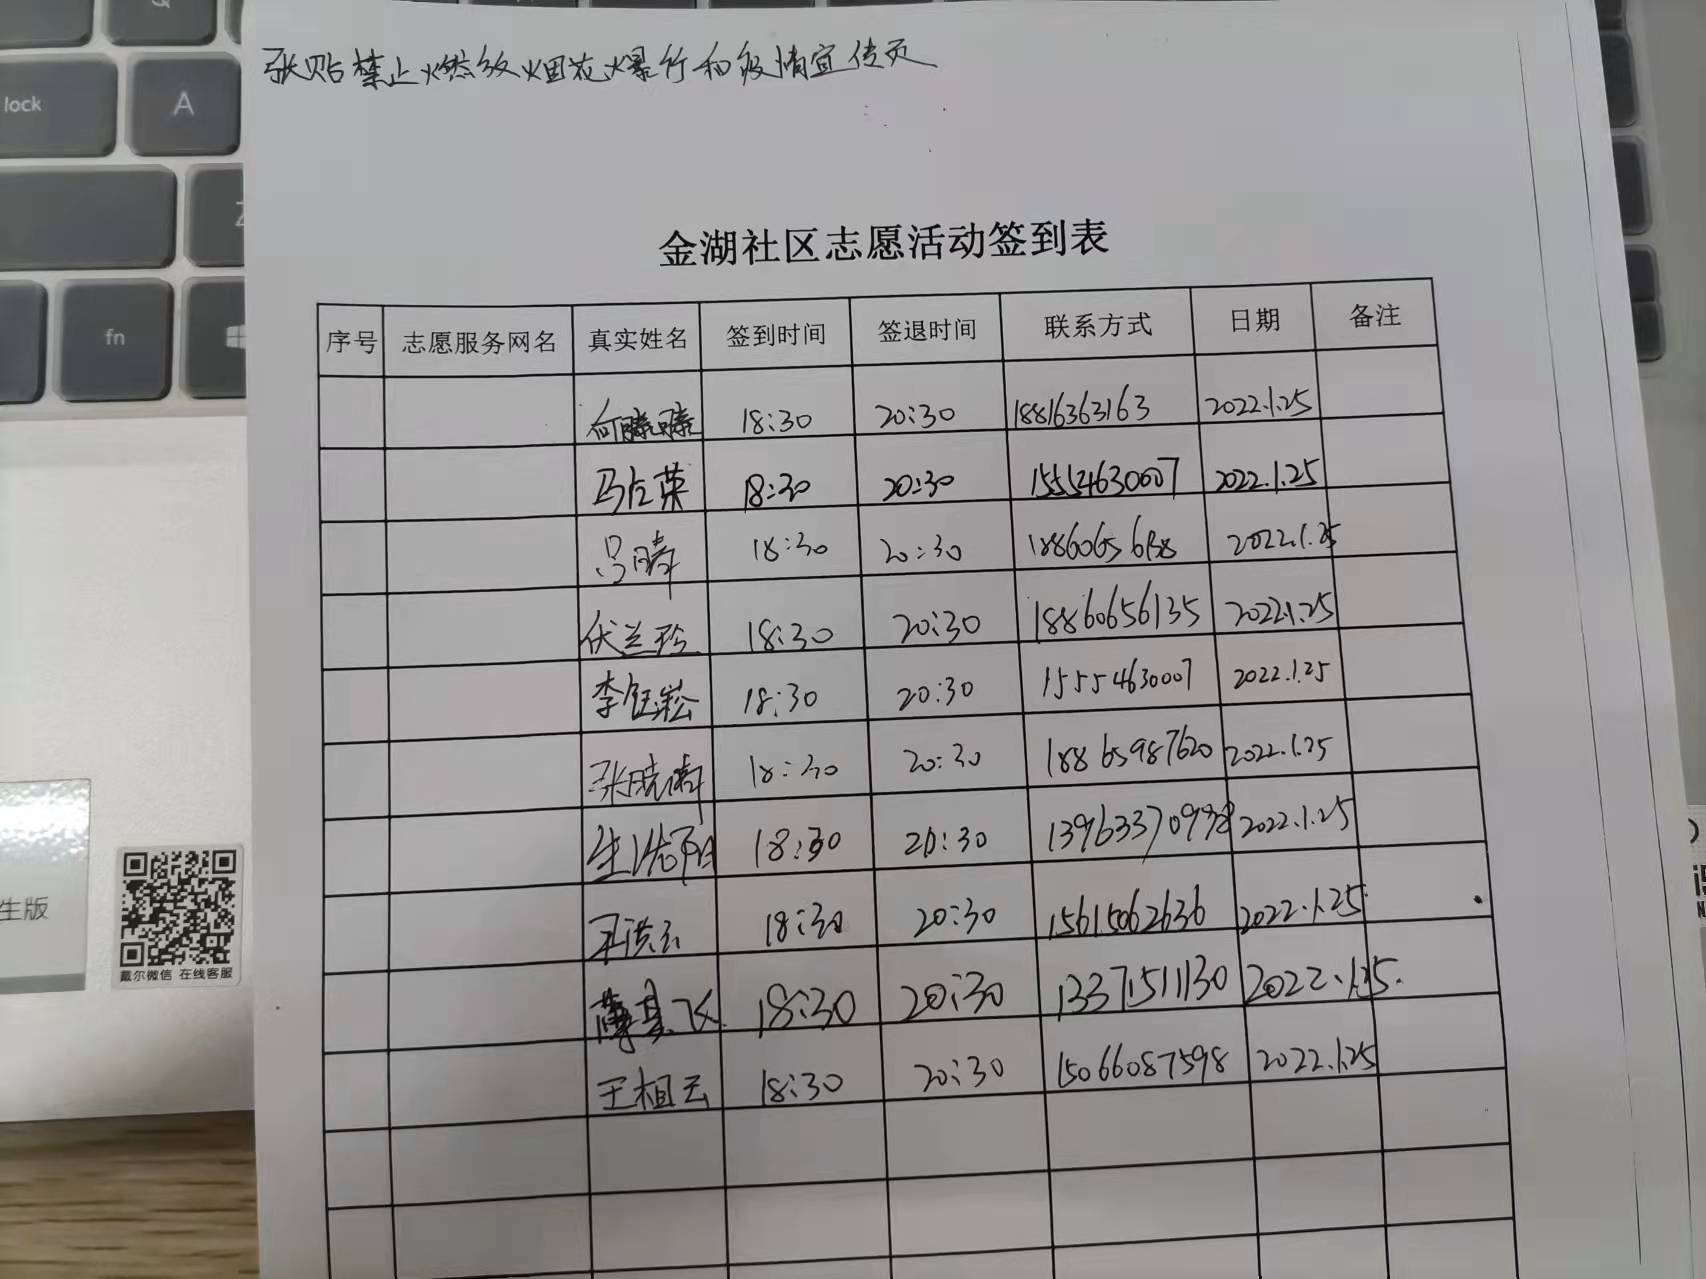 lock
A
fn
张贴禁止燃放烟花爆竹和疫情宣传页
金湖社区志愿活动签到表
序号 志愿服务网名 真实姓名 签到时间 签退时间 联系方式 日期 备注
18:30 20:30 18816363163 2022.1.25
马占荣 18:30 20:30 15554630007 2022.1.25
吕晴 18:30 20:30 2022.1.25
伏兰玲 18:30 20:30 18860656135 2022.1.25
李钰崧 18:30 20:30 15554630007 2022.1.25
张晓倩 18:30 20:30 18865987620 2022.1.25
18:30 20:30 13963370998 2022.1.25
18:30 20:30 15615062636 2022.1.25
薄其飞 18:30 20:30 13371511130 2022.1.25.
王祖云 18:30 20:30 15066087598 2022.1.25
生版
戴尔微信 在线客服